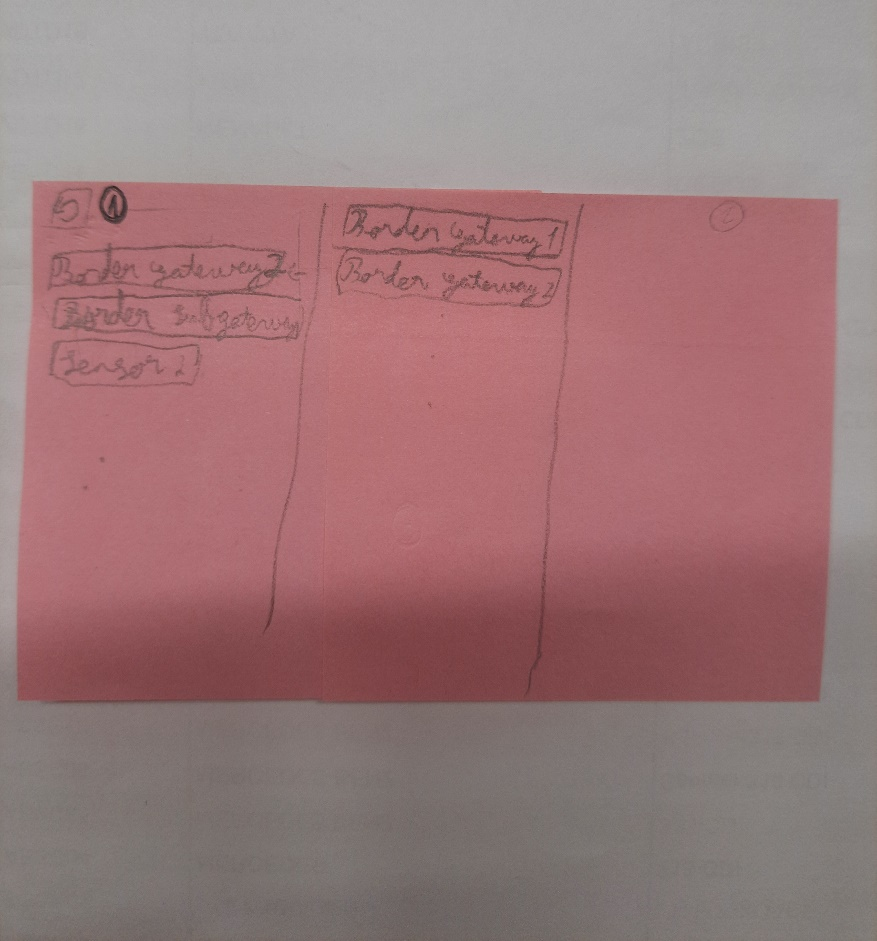 5 1
Border gateway 2
Border subgateway
Sensor 1
Border gateway 1
Border gateway 2
2